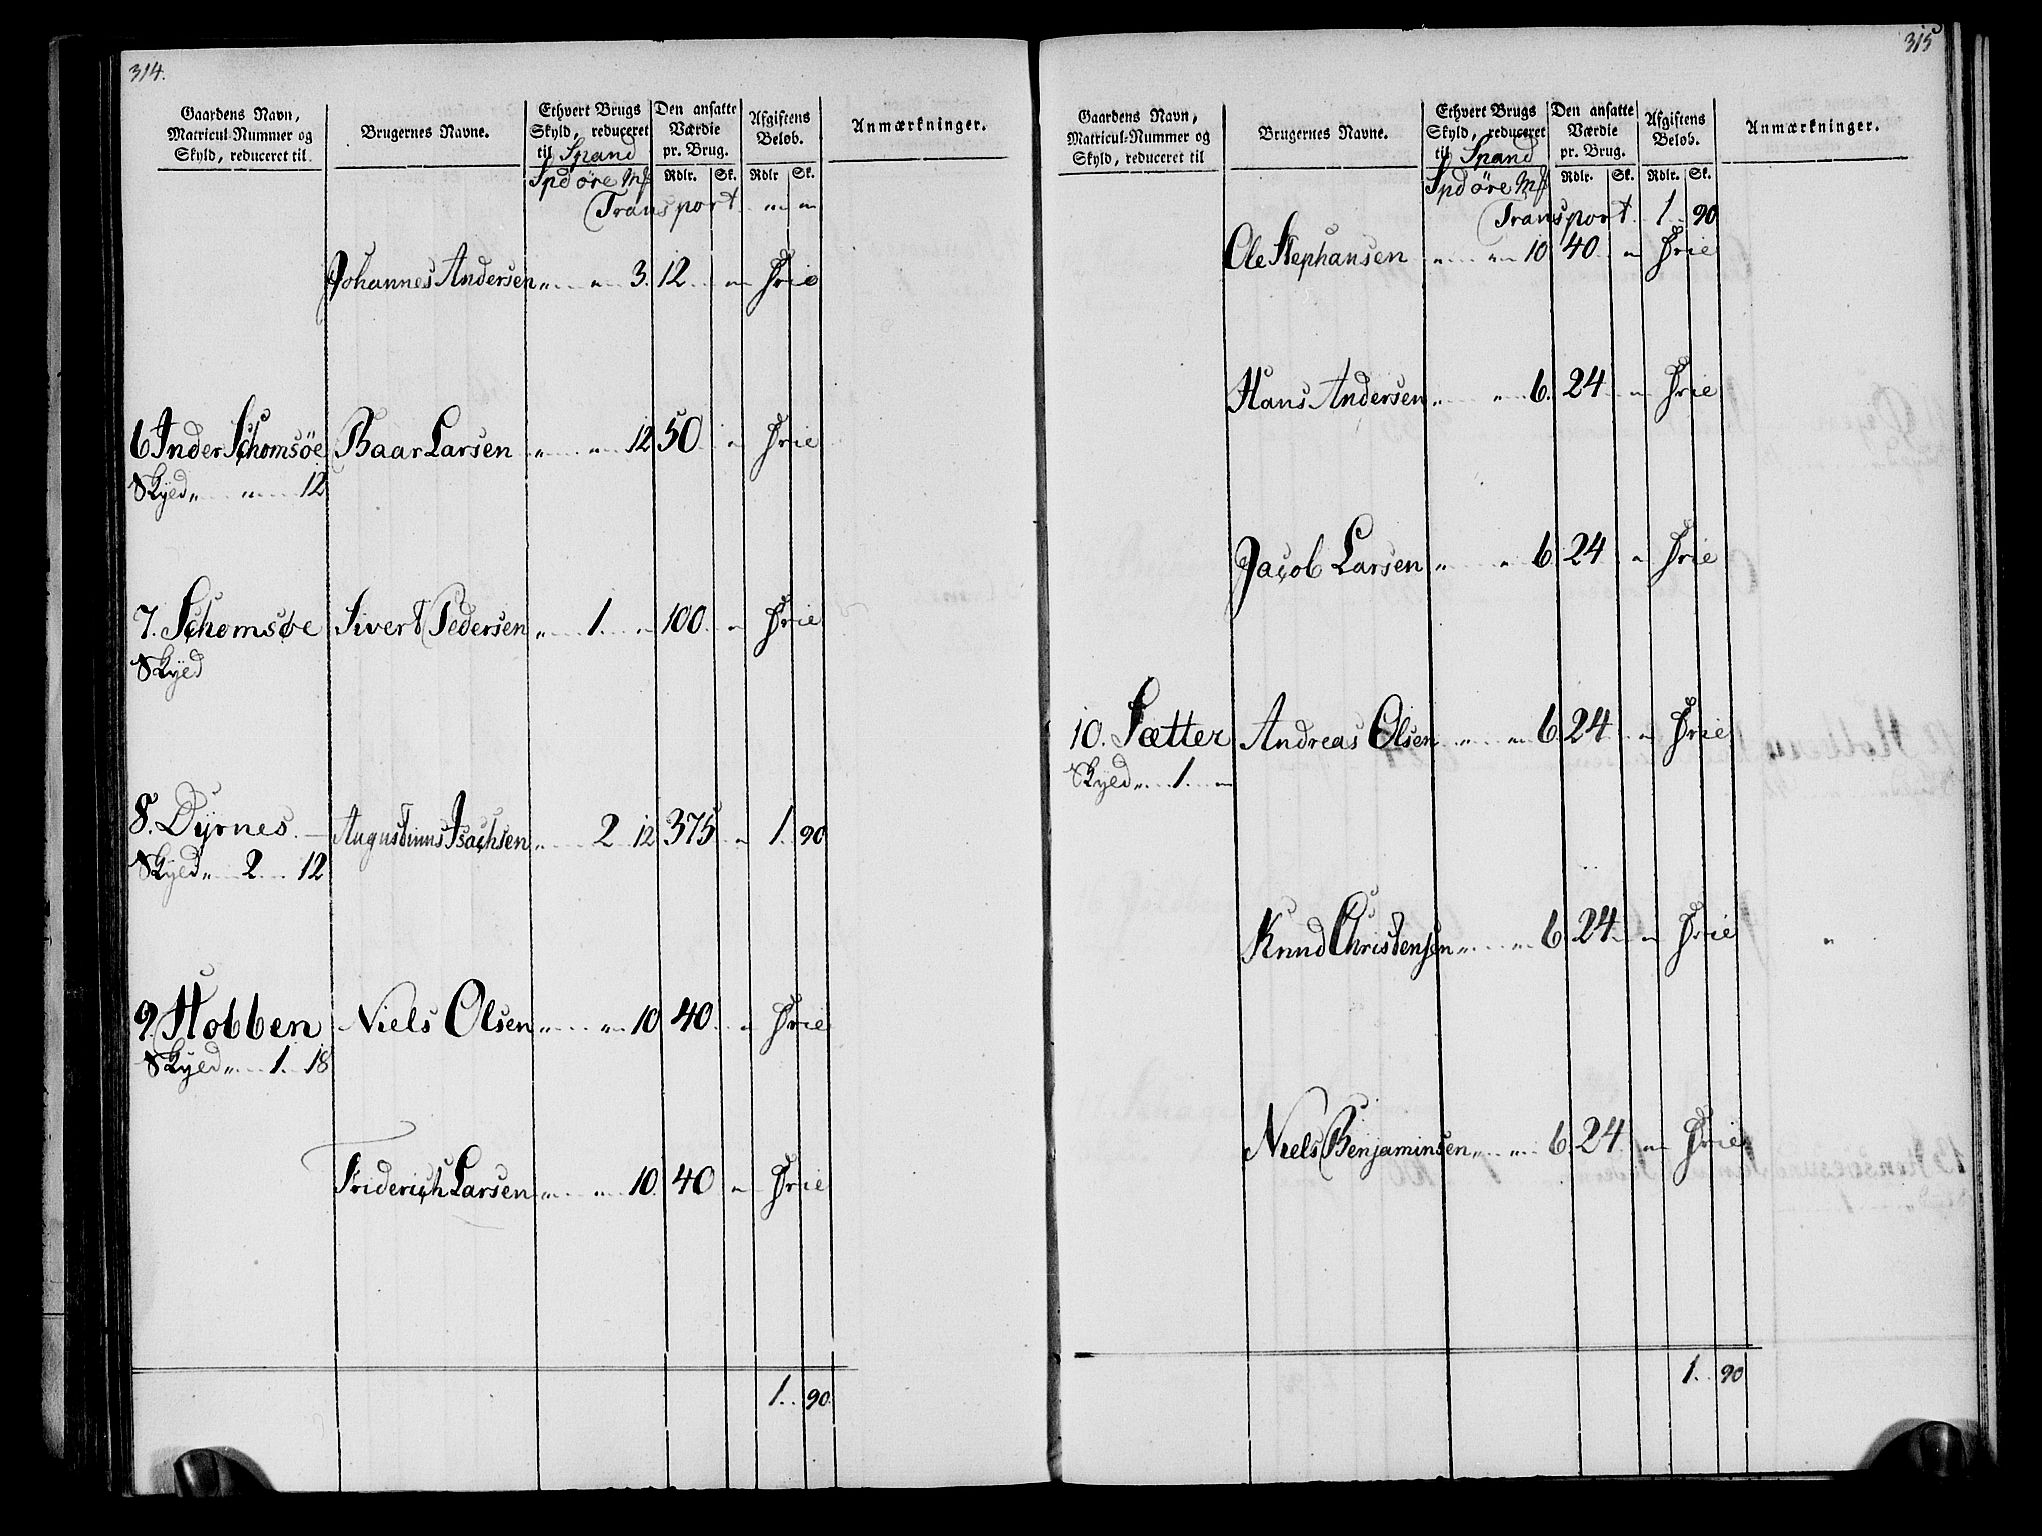 314.
Gaardens Navn, Matricul-Nummer og Skyld, reduceret til
Brugernes Navne.
Ethvert Brugs Skyld, reduceret til Spand
Spd øre Mƺ
Den ansatte Værdie pr. Brug.
Rdlr. Sk.
Afgiftens Beløb.
Rdlr Sk.
Anmærkninger.
Transport „ „
Johannes Andersen „ „ 3. 12 „ Frie
6 Inder Schomsøe Baar Larsen „ „ 12 50 „ Frie
Skyld „ „ 12
7. Schomsøe Sivert Pedersen „ 1. „ 100 „ Frie
Skyld
8. Dyrnes. Augustinus Isachsen „ 2 12 375 „ 1. 90
Skyld „ 2 12
9. Hobben Niels Olsen „ „ 10 40 „ Frie
Skyld „ 1. 18
Friderich Larsen „ „ 10. 40 „ Frie
1. 90.
315
Gaardens Navn, Matricul-Nummer og Skyld, reduceret til
Brugernes Navne.
Ethvert Brugs Skyld, reduceret til Spand
Spd øre Mƺ
Den ansatte Værdie pr. Brug.
Rdlr. Sk.
Afgiftens Beløb.
Rdlr. Sk.
Anmærkninger.
Transport 1. 90
Ole Stephansen „ „ 10 40 „ Frie
Hans Andersen „ „ 6. 24 „ Frie
Jacob Larsen „ „ 6 24 „ Frie
10. Sætter Andreas Olsen „ „ 6 24 „ Frie
Skyld „ 1. „
Knud Christensen „ „ 6 24 „ Frie
Niels Benjaminsen „ „ 6 24 „ Frie
1. 90